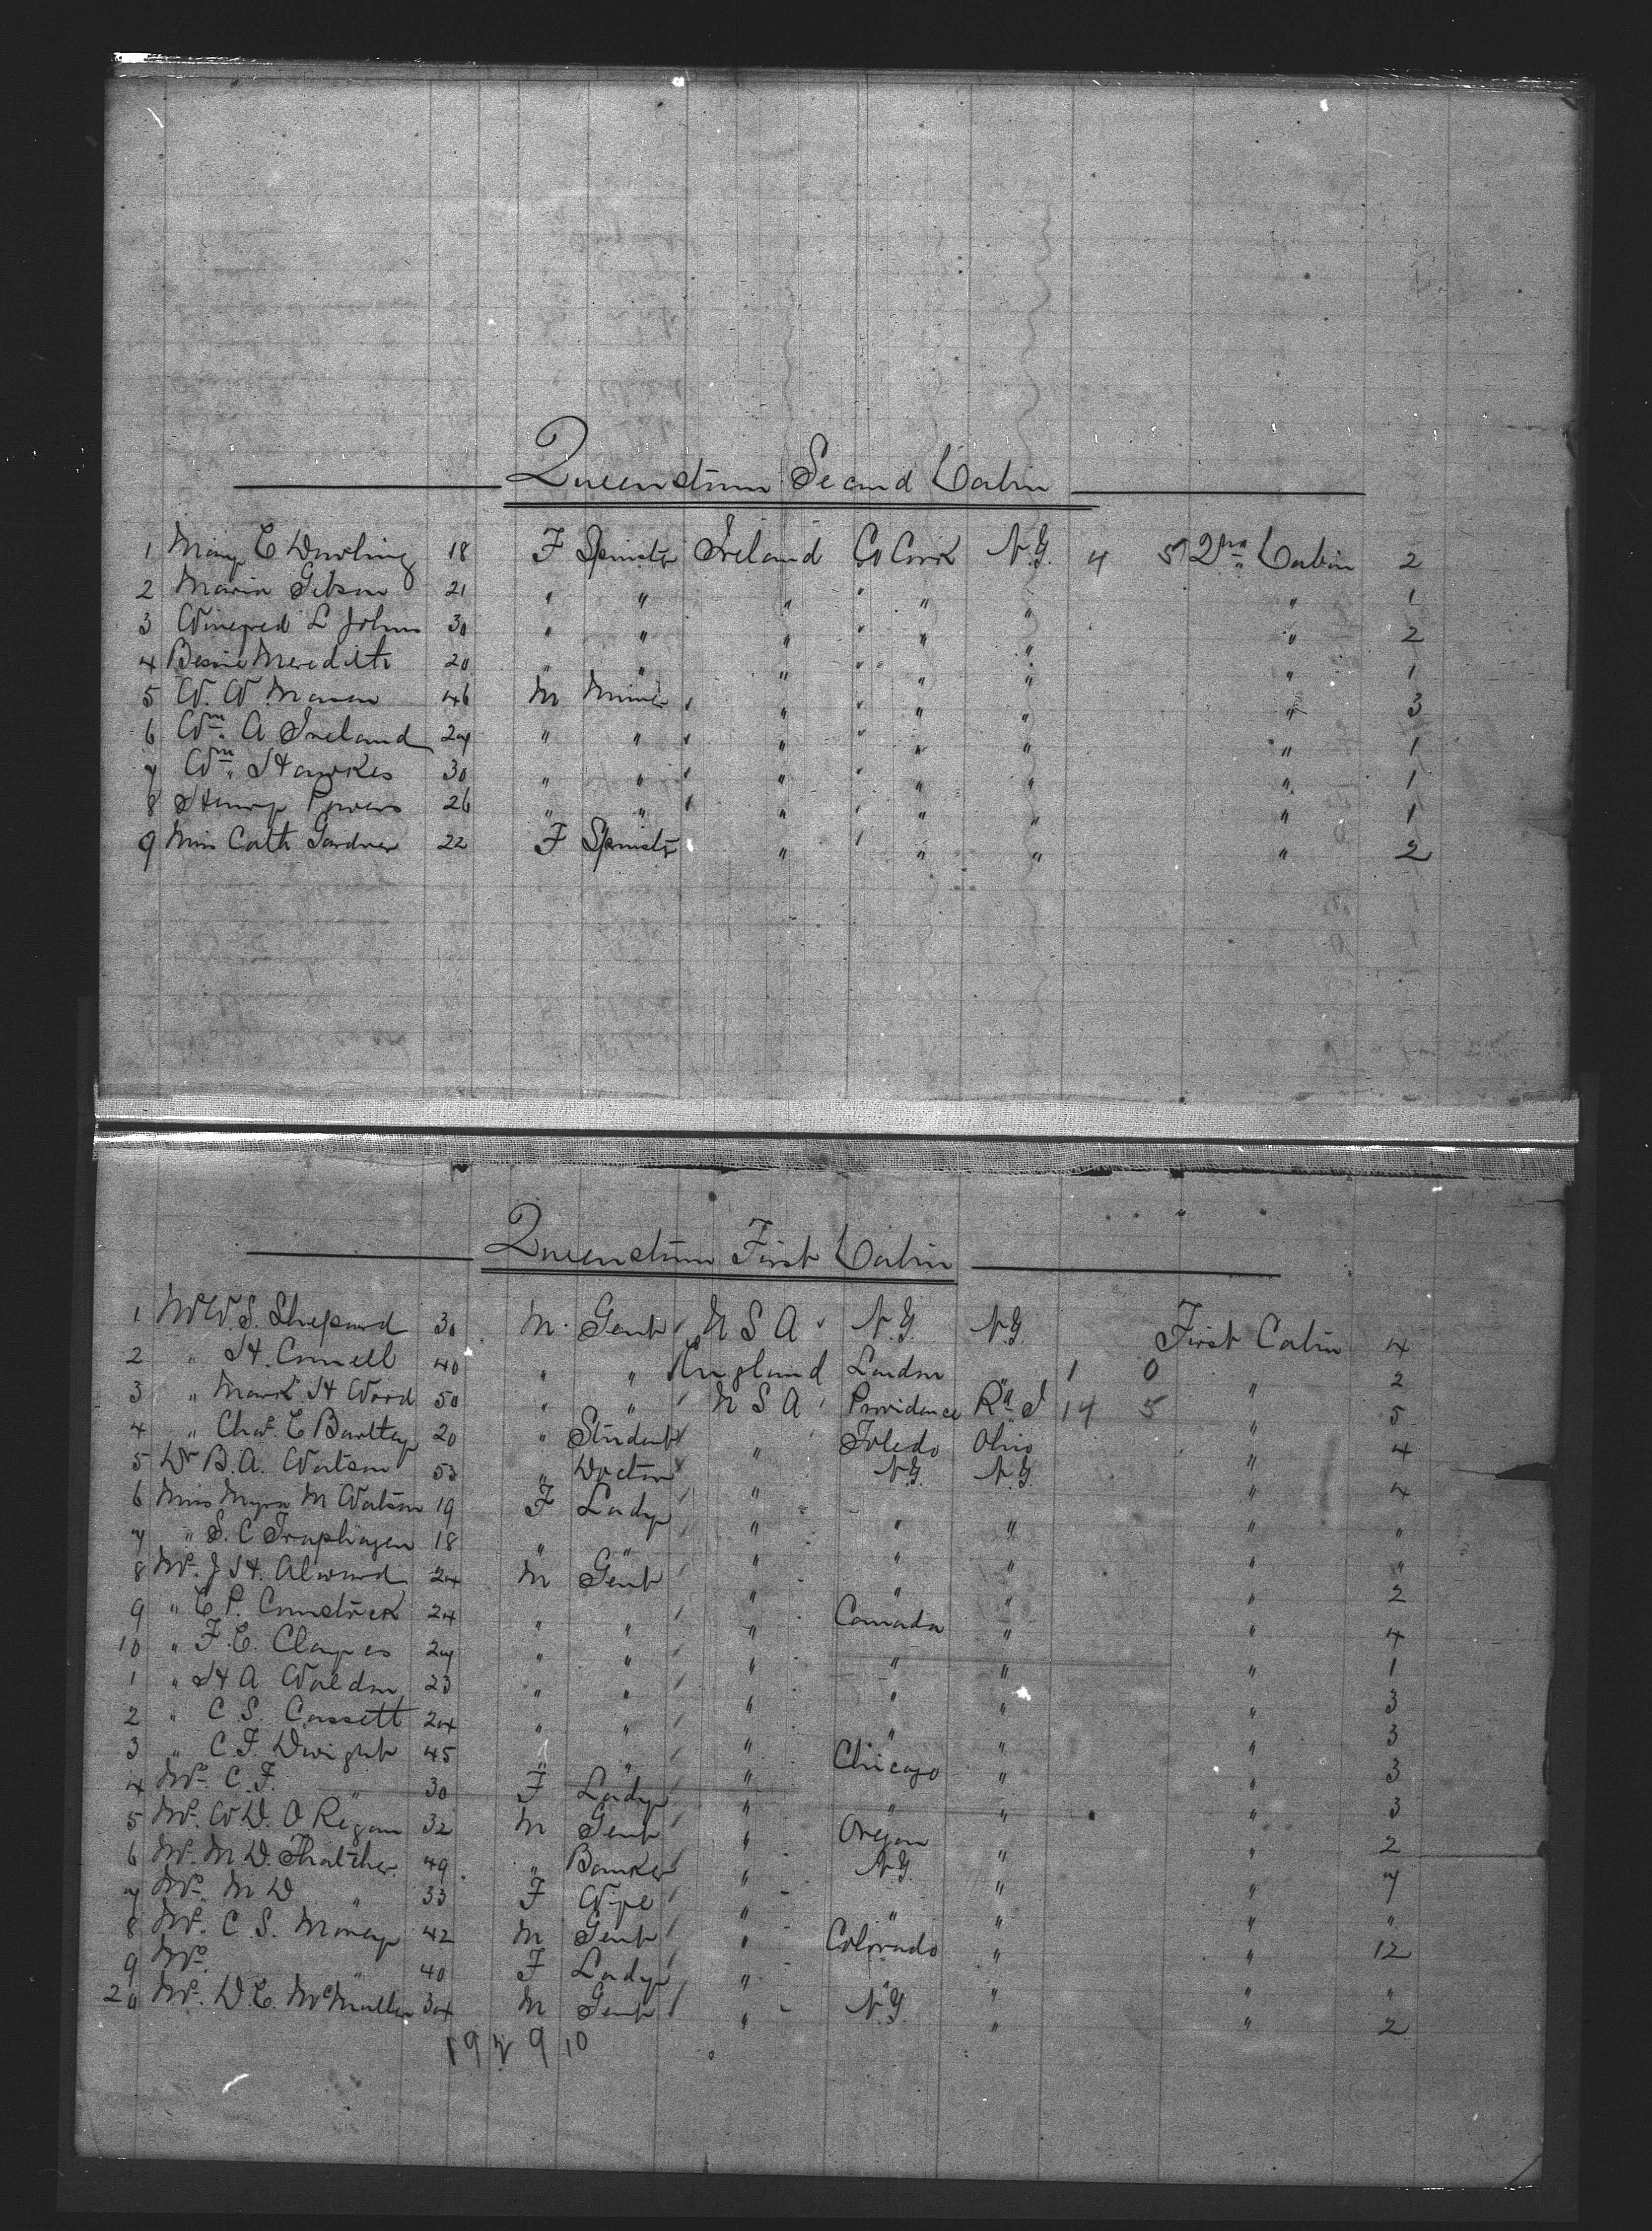 Queenstown Second Cabin
1 Mary E Dowling 18 F Spinstr Ireland Co Cork N.Y. 4 5 2nd Cabin 2
2 Maria Gibson 21 " " " " " " " 1
3 Winefred L Johns 30 " " " " " " " 2
4 Bessie Meredith 20 " " " " " " " 1
5 W. W. Mason 46 M Miner " " " " 3
6 Wm A Ireland 24 " " " " " " 1
7 Wm Hawkes 30 " " " " " " 1
8 Henry Powers 26 " " " " " " 1
9 Miss Cath Gardner 22 F Spinstr " " " " 2
Queenstown First Cabin
1 Mr W. S. Shepard 30 M Gent U S A N.Y. N.Y. First Cabin 4
2 " H. Connell 40 " " England London " 1 0 " 2
3 " Mark H Wood 50 " " U S A Providence Ra I 14 5 " 5
4 " Chas. E Bartley 20 " Student " Toledo Ohio " 4
5 Dr B.A. Watson 53 " Doctor N.Y. N.Y. " 4
6 Miss Myra M Watson 19 F Lady " " " " "
7 " S. C Traphagen 18 " " " " " " "
8 Mr. J H. Alward 24 M Gent " " " " 2
9 " E P. Comstock 24 " " " Canada " " 4
10 " F. E. Clayes 24 " " " " " " 1
1 " H A Waldon 23 " " " " " " 3
2 " C S. Cassett 24 " " " " " " 3
3 " C. F. Dwight 45 " " " Chicago " " 3
4 Mrs. C. F. " 30 F Lady " " " " 3
5 Mr. W D. O Regan 32 M Gent " Oregon " " 2
6 Mr. M D. Thatcher 49 " Banker " N.Y. " " 7
7 Mrs. M D " 33 F Wife " " " " "
8 Mr. C S. Morey 42 M Gent " Colorado " " 12
9 Mrs. " 40 F Lady " " " " "
20 Mr. D. E. McMullen 34 M Gent " N.Y. " " 2